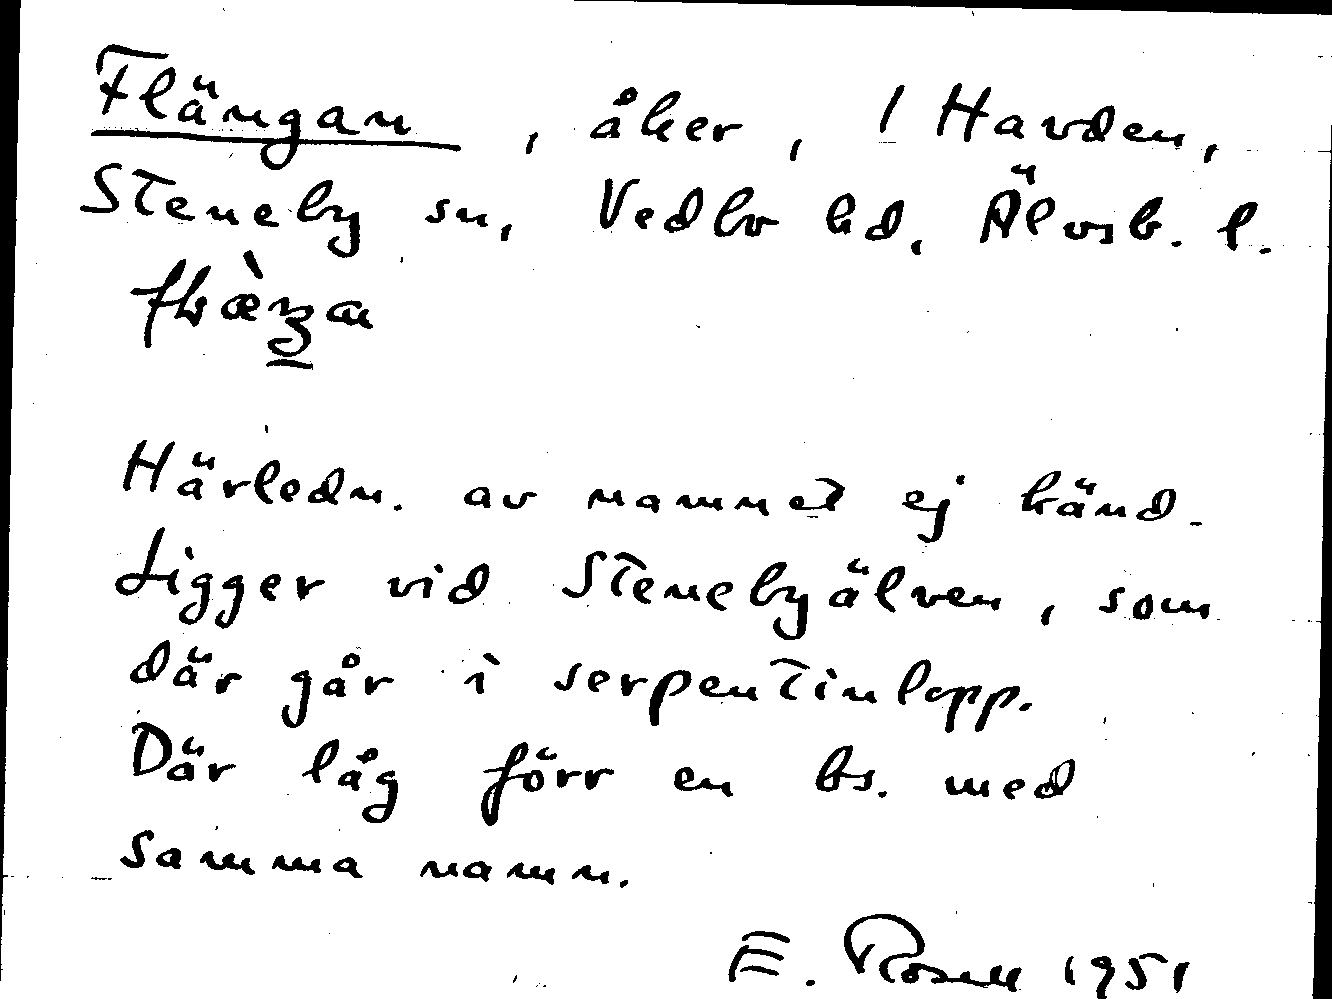 Flängan, åker, 1 Havden,
Steneby sn, Vedbo hd, Älvsb. l.
Härledn. av namnet ej känd.
Ligger vid Stenebyälven, som
där går i serpentinlopp.
Där låg förr en bs. med
samma namn.
E. Rosell 1951